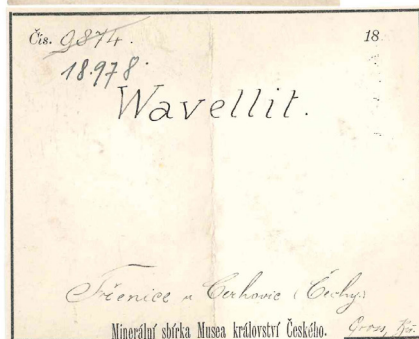 Čís. 9874. 18
18.978.
Wavellit.
Třenice u Cerhovic (Čechy.)
Minerální sbírka Musea království Českého.